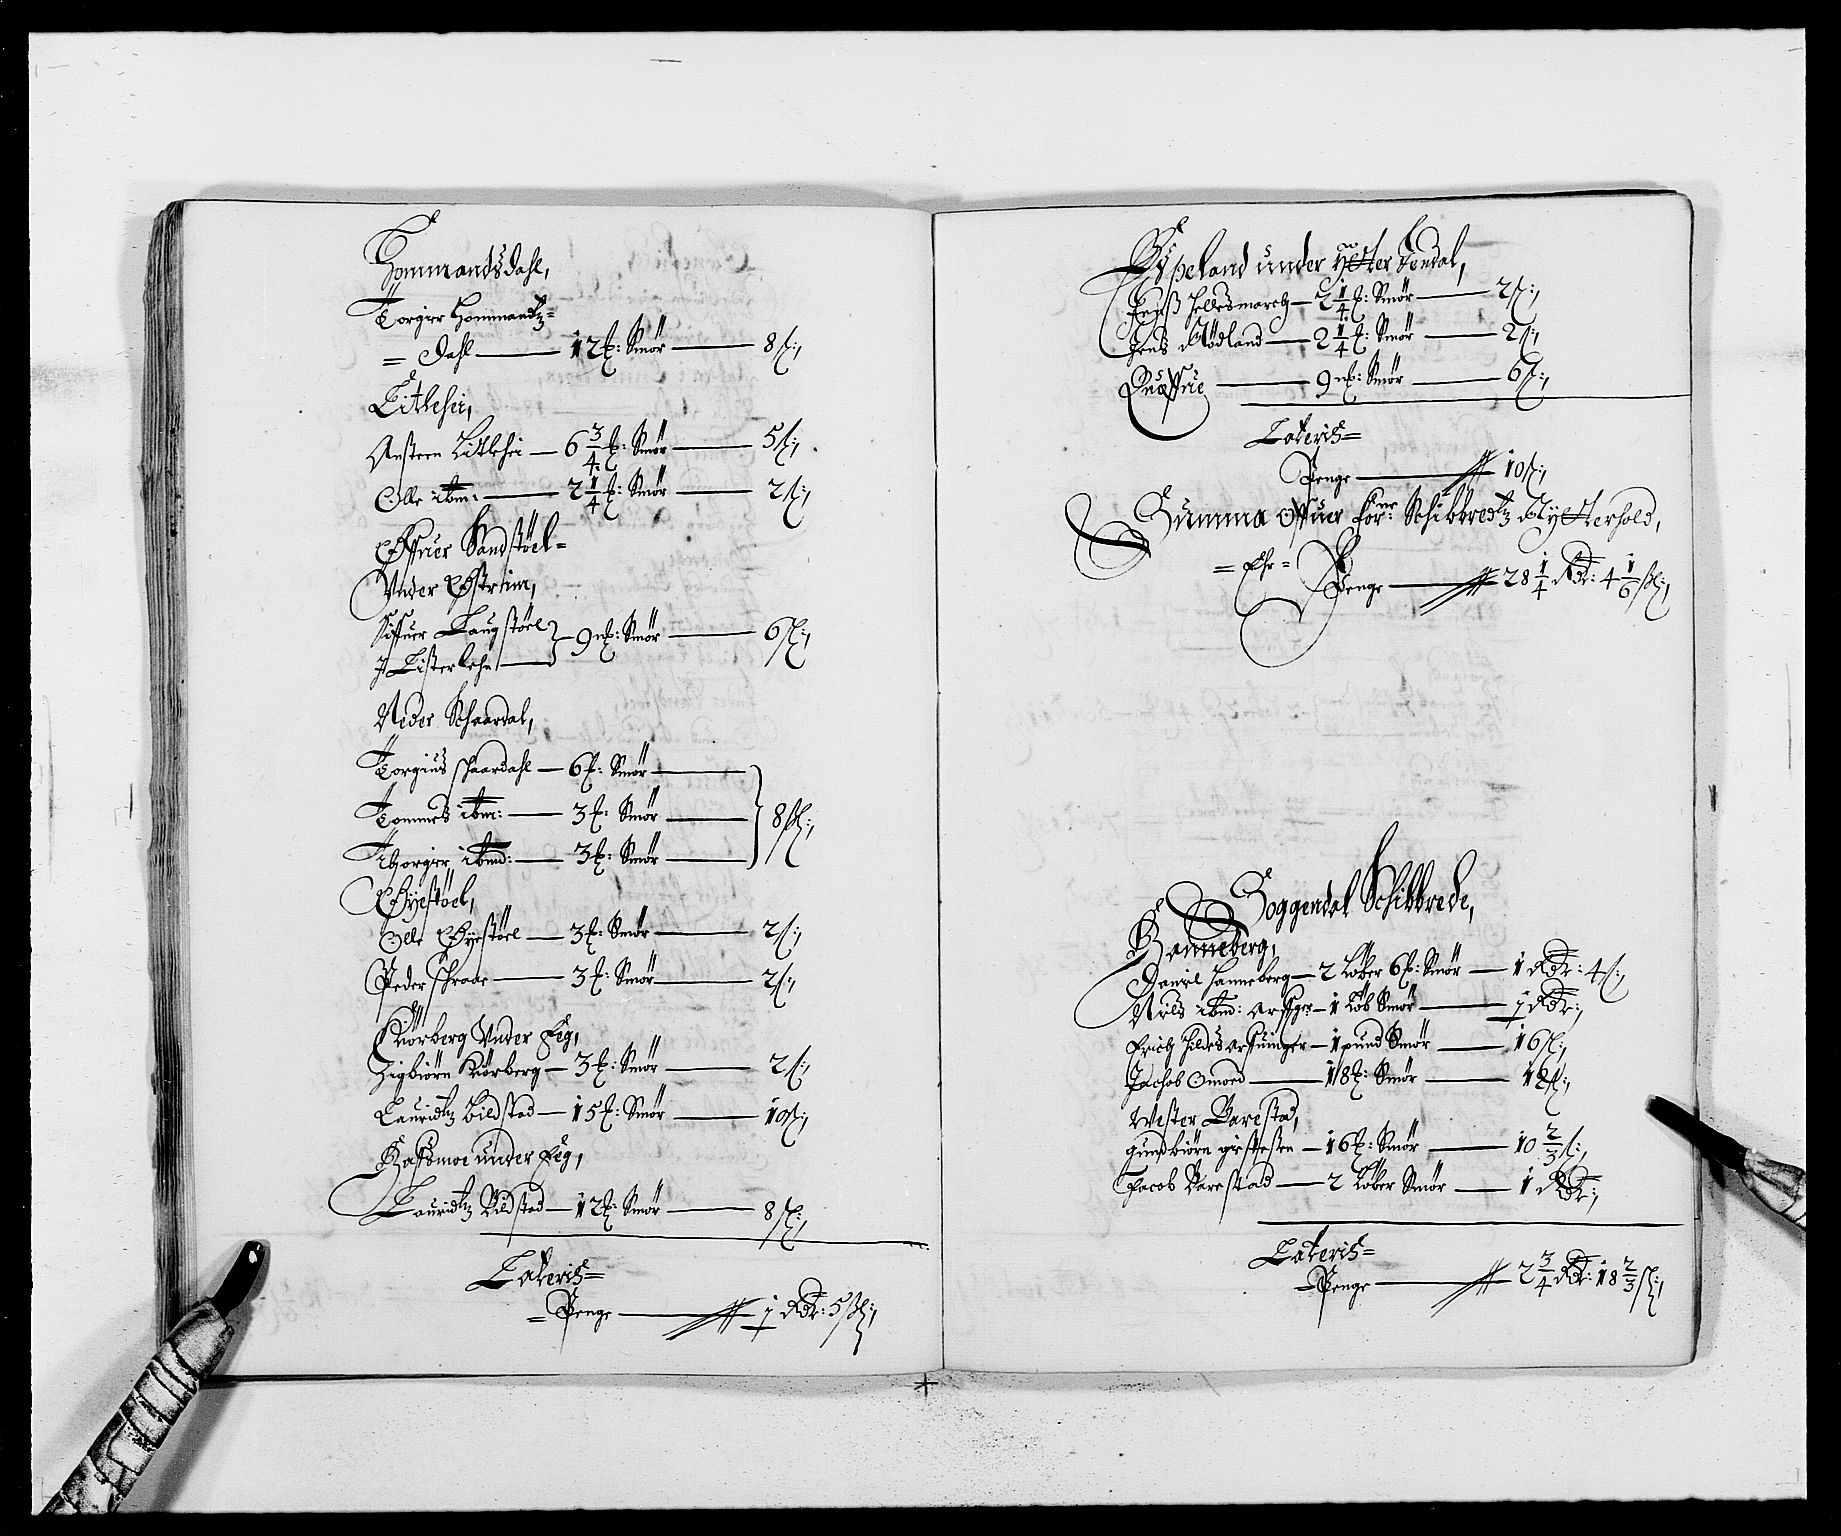 Hommandsdahl,
Torgier Hommandtz=
= Dahl — 12 ℔: Smør — 8 ß:,
Litlehei,
Austen Litlehei — 6 3/4 ℔: Smør — 5 ß:,
Olle ibm: — 2 1/4 ℔: Smør — 2 ß:,
Øffuer Sandstøel=
Vnder Østrim,
Siffuer Laugstøel
J Listerlehn — 9 m℔: Smør — 6 ß:,
Neder Schaardal,
Torgius schaardahl — 6 ℔: Smør —
Tommes ibm: — 3 ℔: Smør — 8 ß:,
Thorgier ibmd: — 3 ℔: Smør —
Øyestøel,
Olle Øyestøel — 3 ℔: Smør — 2 ß:,
Peder schraae — 3 ℔: Smør — 2 ß:,
Kiørberg Vnder Eeg,
Sigbiørn Kiørberg — 3 ℔: Smør — 2 ß:,
Lauridtz Bildstad — 15 ℔: Smør — 10 ß:,
Hafsmoe under Eeg,
Lauridtz Bildstad — 12 ℔: Smør — 8 ß:,
Lateris=
= Penge — 1 Rdr: 5 ß:,
Espeland under Ytter Tendal,
Jenß hellesmarch — 2 1/4 ℔: Smør — 2 ß:,
Jens Rødland — 2 1/4 ℔: Smør — 2 ß:,
9 m℔: Smør — 6 ß:,
Lateris=
Penge — 10 ß:,
Summa offuer forne: Schibbredtz Rytterhold,
= Ehr=
Penge — 28 1/4 Rdr: 4 1/6 ß:,
Soggendal Schibbrede,
Hanneberg,
Daniel Hanneberg — 2 Løber 6 ℔: Smør — 1 Rdr: 4 ß:,
Niels ibmd: arffger — 1 Løb Smør — 1/2 Rdr:,
Erich hildes arffuinger — 1 pund Smør — 16 ß:,
Jachob Omoed — 18 ℔: Smør — 12 ß:,
Wester Barestad,
Gundbiørn — 16 ℔: Smør — 10 2/3 ß:,
Jacob Barestad — 2 Løber Smør — 1 Rdr:,
Lateris=
= Penge — 2 3/4 Rdr: 18 2/3 ß:,